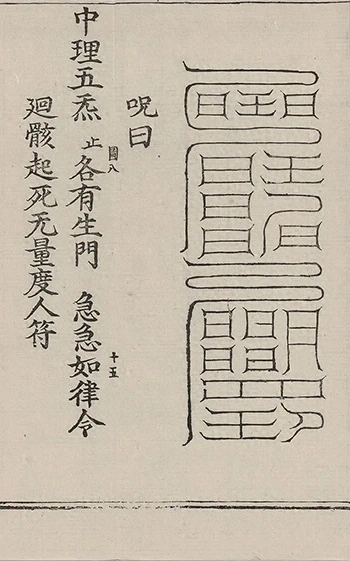 呪曰
中理五炁 止 各有生門 急急如律令 十五
廻骸起死无量度人符